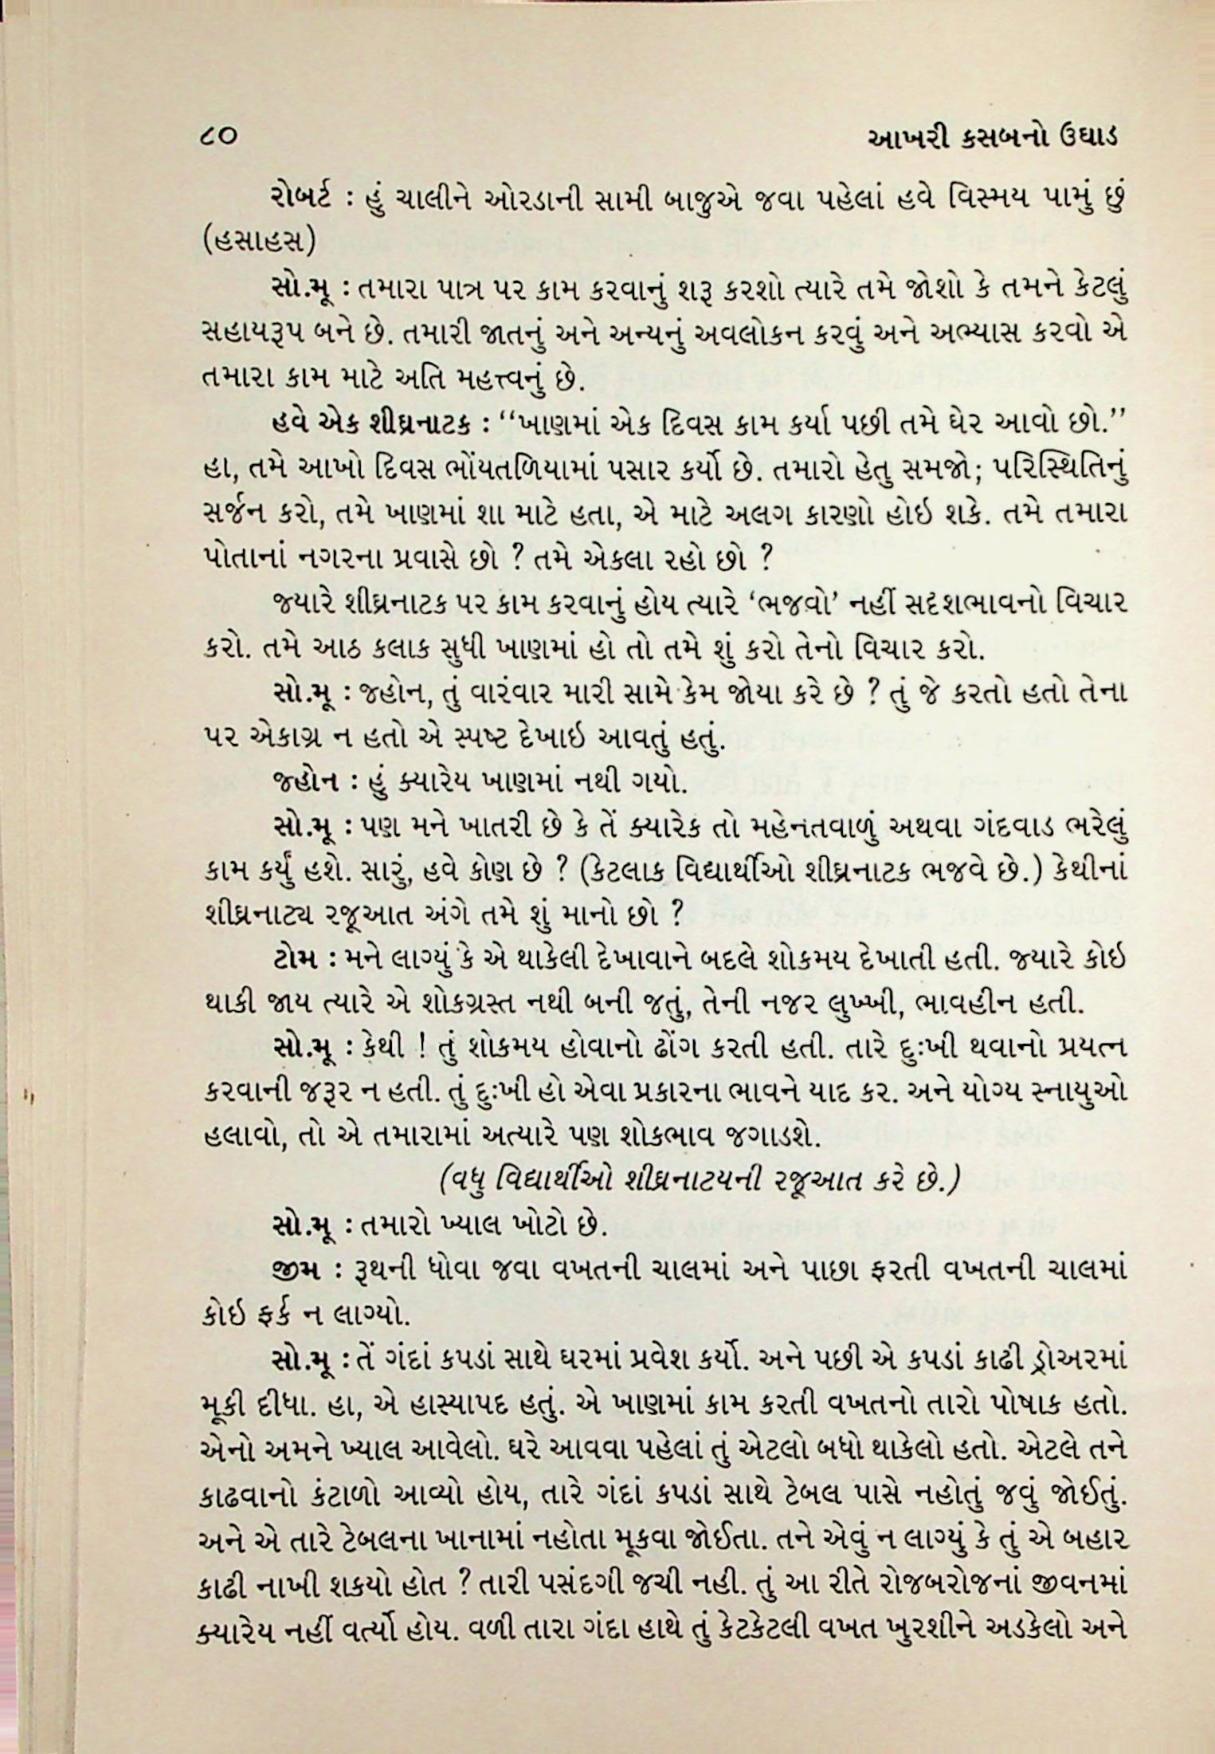 ૮૦
આખરી કસબનો ઉઘાડ
રોબર્ટ : હું ચાલીને ઓરડાની સામી બાજુએ જવા પહેલાં હવે વિસ્મય પામું છું
(હસાહસ)
સો.મૂ : તમારા પાત્ર પર કામ કરવાનું શરૂ કરશો ત્યારે તમે જોશો કે તમને કેટલું
સહાયરૂપ બને છે. તમારી જાતનું અને અન્યનું અવલોકન કરવું અને અભ્યાસ કરવો એ
તમારા કામ માટે અતિ મહત્ત્વનું છે.
હવે એક શીઘ્રનાટક : ‘‘ખાણમાં એક દિવસ કામ કર્યા પછી તમે ઘેર આવો છો.’’
હા, તમે આખો દિવસ ભોંયતળિયામાં પસાર કર્યો છે. તમારો હેતુ સમજો; પરિસ્થિતિનું
સર્જન કરો, તમે ખાણમાં શા માટે હતા, એ માટે અલગ કારણો હોઇ શકે. તમે તમારા
પોતાનાં નગરના પ્રવાસે છો ? તમે એકલા રહો છો ?
જ્યારે શીઘ્રનાટક પર કામ કરવાનું હોય ત્યારે ‘ભજવો’ નહીં સદૃશભાવનો વિચાર
કરો. તમે આઠ કલાક સુધી ખાણમાં હો તો તમે શું કરો તેનો વિચાર કરો.
સો.મૂ : જ્હોન, તું વારંવાર મારી સામે કેમ જોયા કરે છે ? તું જે કરતો હતો તેના
પર એકાગ્ર ન હતો એ સ્પષ્ટ દેખાઇ આવતું હતું.
જ્હોન : હું ક્યારેય ખાણમાં નથી ગયો.
સો.મૂ : પણ મને ખાતરી છે કે તેં ક્યારેક તો મહેનતવાળું અથવા ગંદવાડ ભરેલું
કામ કર્યું હશે. સારું, હવે કોણ છે ? (કેટલાક વિદ્યાર્થીઓ શીઘ્રનાટક ભજવે છે.) કેથીનાં
શીઘ્રનાટ્ય રજૂઆત અંગે તમે શું માનો છો ?
ટોમ : મને લાગ્યું કે એ થાકેલી દેખાવાને બદલે શોકમય દેખાતી હતી. જ્યારે કોઇ
થાકી જાય ત્યારે એ શોકગ્રસ્ત નથી બની જતું, તેની નજર લુખ્ખી, ભાવહીન હતી.
સો.મૂ : કેથી ! તું શોકમય હોવાનો ઢોંગ કરતી હતી. તારે દુઃખી થવાનો પ્રયત્ન
કરવાની જરૂર ન હતી. તું દુઃખી હો એવા પ્રકારના ભાવને યાદ કર. અને યોગ્ય સ્નાયુઓ
હલાવો, તો એ તમારામાં અત્યારે પણ શોકભાવ જગાડશે.
(વધુ વિદ્યાર્થીઓ શીઘ્રનાટયની રજૂઆત કરે છે.)
સો.મૂ : તમારો ખ્યાલ ખોટો છે.
જીમ : રૂથની ધોવા જવા વખતની ચાલમાં અને પાછા ફરતી વખતની ચાલમાં
કોઇ ફર્ક ન લાગ્યો.
સો.મૂ : તેં ગંદાં કપડાં સાથે ઘરમાં પ્રવેશ કર્યો. અને પછી એ કપડાં કાઢી ડ્રોઅરમાં
મૂકી દીધા. હા, એ હાસ્યાપદ હતું. એ ખાણમાં કામ કરતી વખતનો તારો પોષાક હતો.
એનો અમને ખ્યાલ આવેલો. ઘરે આવવા પહેલાં તું એટલો બધો થાકેલો હતો. એટલે તને
કાઢવાનો કંટાળો આવ્યો હોય, તારે ગંદાં કપડાં સાથે ટેબલ પાસે નહોતું જવું જોઈતું.
અને એ તારે ટેબલના ખાનામાં નહોતા મૂકવા જોઈતા. તને એવું ન લાગ્યું કે તું એ બહાર
કાઢી નાખી શકયો હોત ? તારી પસંદગી જચી નહી. તું આ રીતે રોજબરોજનાં જીવનમાં
ક્યારેય નહીં વર્ત્યો હોય. વળી તારા ગંદા હાથે તું કેટકેટલી વખત ખુરશીને અડકેલો અને